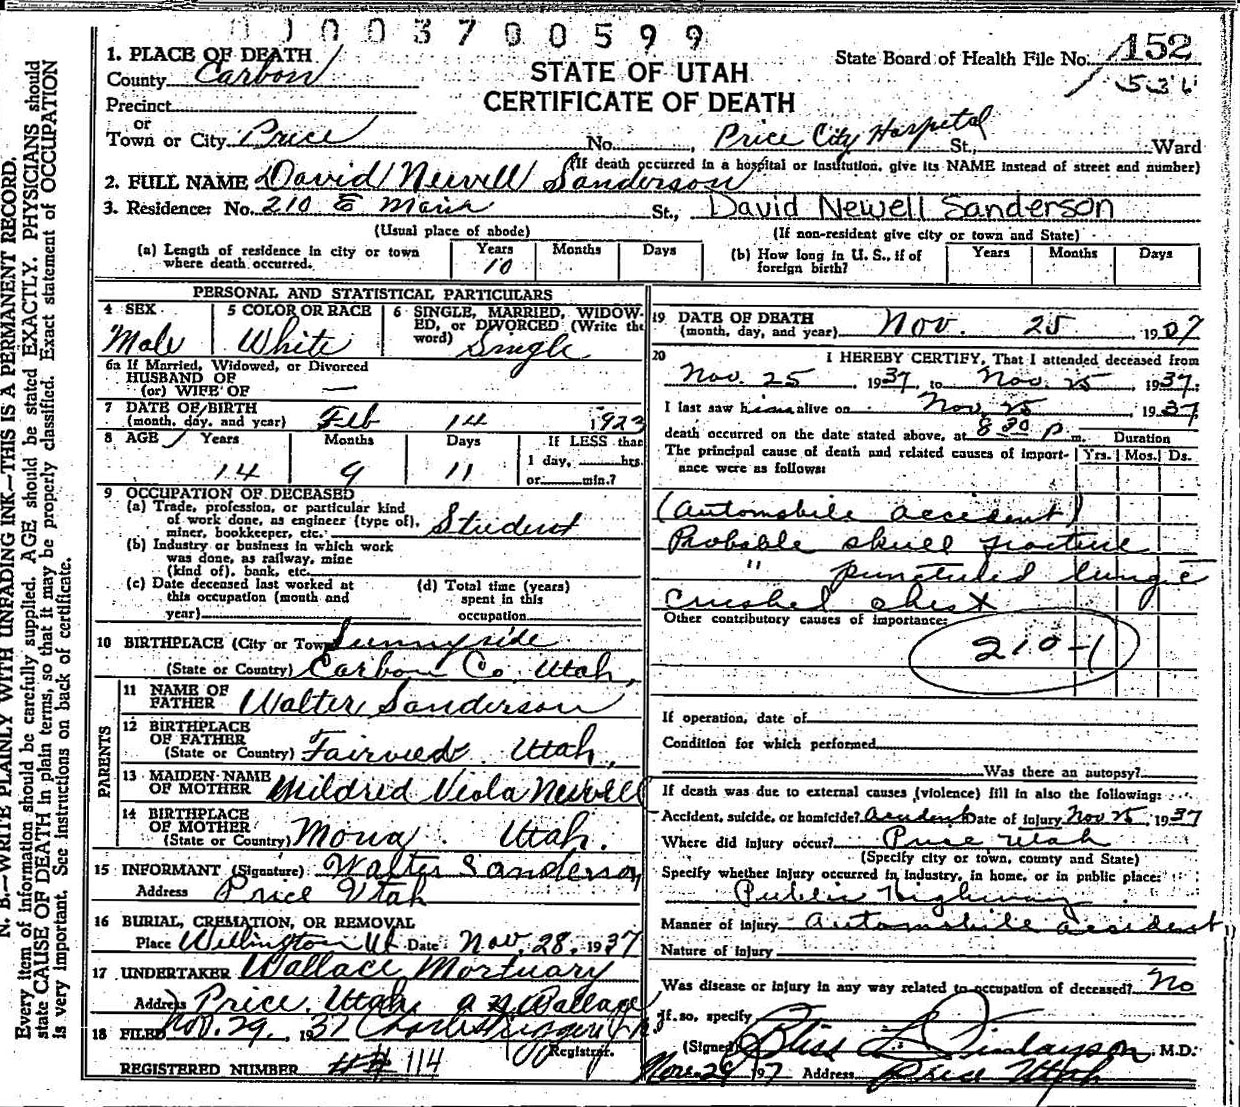 00003700599
1. PLACE OF DEATH
County Carbon
State Board of Health File No. 152
STATE OF UTAH
CERTIFICATE OF DEATH
Precinct
or
Town or City Price No. , Price City Hospital St., Ward
(If death occurred in a hospital or institution, give its NAME instead of street and number)
2. FULL NAME David Newell Sanderson
3. Residence: No. 210 E Main St., David Newell Sanderson
(Usual place of abode) (If non-resident give city or town and State)
(a) Length of residence in city or town where death occurred. Years 10 Months Days
(b) How long in U. S., if of foreign birth? Years Months Days
PERSONAL AND STATISTICAL PARTICULARS
4 SEX Male
5 COLOR OR RACE White
6 SINGLE, MARRIED, WIDOWED, or DIVORCED (Write the word) Single
6a If Married, Widowed, or Divorced
HUSBAND OF
(or) WIFE OF —
7 DATE OF BIRTH
(month, day, and year) Feb 14 1923
8 AGE Years Months Days If LESS than
14 9 11 1 day, hrs.
or min.?
9 OCCUPATION OF DECEASED
(a) Trade, profession, or particular kind
of work done, as engineer (type of),
miner, bookkeeper, etc. Student
(b) Industry or business in which work
was done, as railway, mine
(kind of), bank, etc.
(c) Date deceased last worked at
this occupation (month and
year)
(d) Total time (years)
spent in this
occupation
10 BIRTHPLACE (City or Town) Sunnyside
(State or Country) Carbon Co. Utah.
PARENTS
11 NAME OF
FATHER Walter Sanderson
12 BIRTHPLACE
OF FATHER
(State or Country) Fairview Utah.
13 MAIDEN NAME
OF MOTHER Mildred Viola Newell
14 BIRTHPLACE
OF MOTHER
(State or Country) Mona Utah.
15 INFORMANT (Signature) Walter Sanderson
Address Price Utah
16 BURIAL, CREMATION, OR REMOVAL
Place Wellington Ut. Date Nov. 28, 1937
17 UNDERTAKER Wallace Mortuary
Address Price, Utah Wallace
18 FILED Nov. 29, 1937
Registrar.
REGISTERED NUMBER 114
19 DATE OF DEATH
(month, day, and year) Nov. 25 1937
20 I HEREBY CERTIFY, That I attended deceased from
Nov. 25, 1937, to Nov. 25, 1937.
I last saw him alive on Nov. 25, 1937
death occurred on the date stated above, at 8 30 P m. Duration
The principal cause of death and related causes of importance were as follows: Yrs. Mos. Ds.
(Automobile accident)
Probable skull fracture
" punctured lungs
Crushed chest
Other contributory causes of importance:
210-1
If operation, date of
Condition for which performed
Was there an autopsy?
If death was due to external causes (violence) fill in also the following:
Accident, suicide, or homicide? Accident Date of injury Nov 25, 1937
Where did injury occur? Price Utah
(Specify city or town, county and State)
Specify whether injury occurred in industry, in home, or in public place:
Public Highway
Manner of injury Automobile accident
Nature of injury
Was disease or injury in any way related to occupation of deceased? No
If so, specify
(Signed) Bliss L. Finlayson, M.D.
Nov. 29 Address Price Utah
N. B.—WRITE PLAINLY WITH UNFADING INK—THIS IS A PERMANENT RECORD.
Every item of information should be carefully supplied. AGE should be stated EXACTLY. PHYSICIANS should
state CAUSE OF DEATH in plain terms, so that it may be properly classified. Exact statement of OCCUPATION
is very important. See instructions on back of certificate.